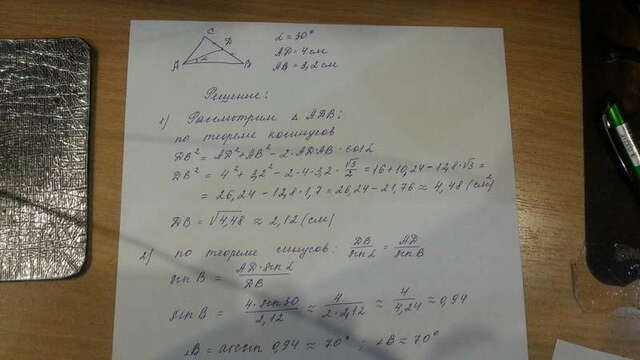 C
D
A α B
α = 30°
AD = 4 см
AB = 3,2 см
Решение:
1) Рассмотрим △ ADB:
по теореме косинусов
DB² = AD² + AB² - 2·AD·AB · cosα
DB² = 4² + 3,2² - 2·4·3,2 · √3/2 = 16 + 10,24 - 12,8·√3 =
= 26,24 - 12,8·1,7 = 26,24 - 21,76 ≈ 4,48 (см²)
DB = √4,48 ≈ 2,12 (см)
2) по теореме синусов: DB/sinα = AD/sinB
sin B = AD·sinα/DB
sin B = 4·sin30/2,12 ≈ 4/2·2,12 ≈ 4/4,24 ≈ 0,94
∠B = arcsin 0,94 ≈ 70° ; ∠B ≈ 70°